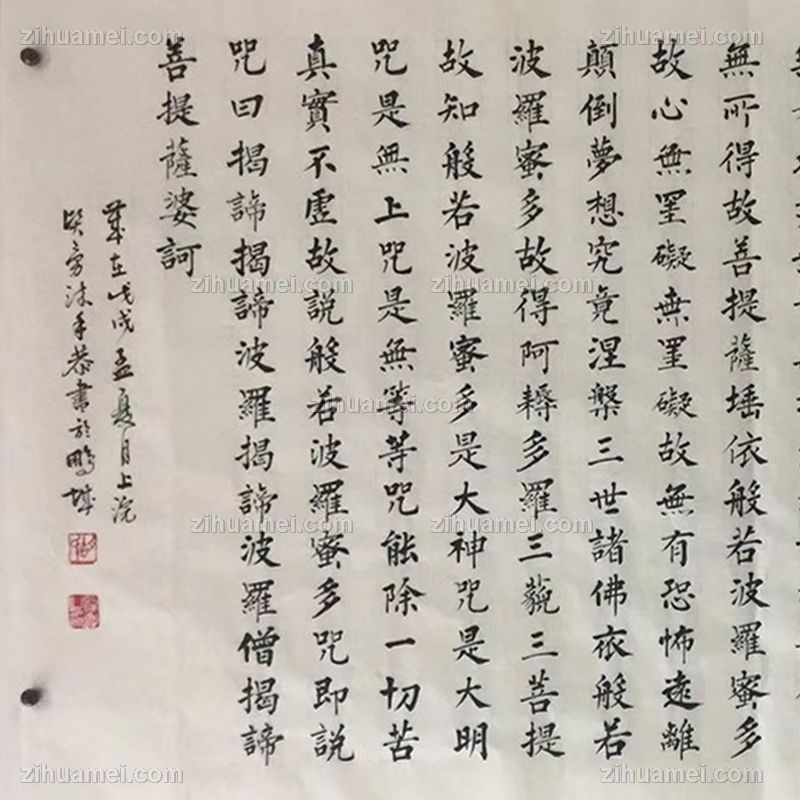 無所得故菩提薩埵依般若波羅蜜多
故心無罣礙無罣礙故無有恐怖遠離
顛倒夢想究竟涅槃三世諸佛依般若
波羅蜜多故得阿耨多羅三藐三菩提
故知般若波羅蜜多是大神咒是大明
咒是無上咒是無等等咒能除一切苦
真實不虛故說般若波羅蜜多咒即說
咒曰揭諦揭諦波羅揭諦波羅僧揭諦
菩提薩婆訶
歲在戊戌孟夏月上浣
沐手恭書於鵬城
zihuamei.com